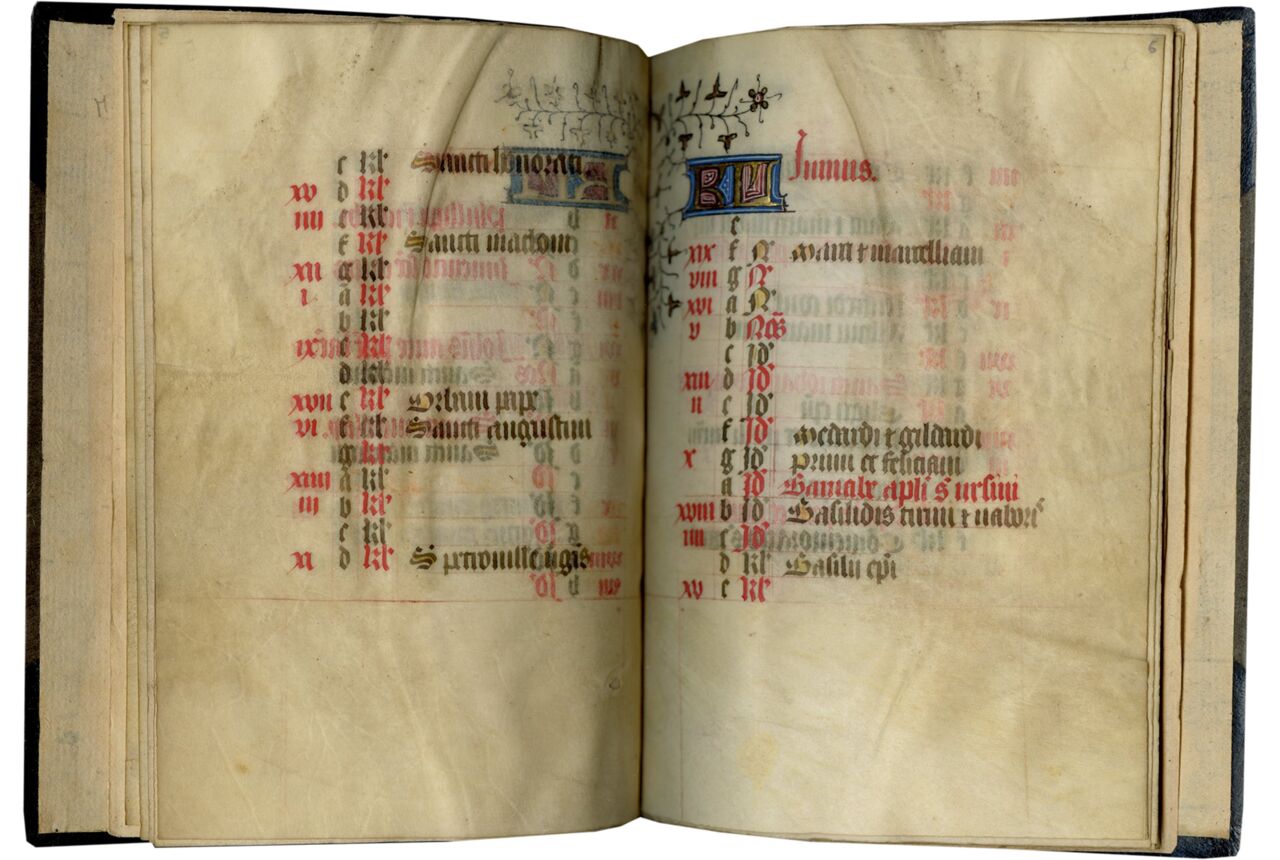 c kl' Sancti honorati.
xv d kl'
iiii e kl'
f kl' Sancti macloui
xii g kl'
i. a kl'
b kl'
ix c kl'
d kl'
xvii e kl' Urbani pape
vi f kl' Sancti augustini
g kl'
xiiii a kl'
iii b kl'
c kl'
xi d kl' S petronille uĝis
6
KL Iunius.
e
xix f N' Marci & marcelliani
viii g N'
xvi a N'
v b Nos
c Id'
xiii d Id'
ii e Id'
f Id' Medardi & gildardi
x g Id' primi et feliciani
a Id' Barnabe apli s ursini
xviii b Id' Basilidis cirini & nabor
iiii c Id'
d kl' Basilii epi
xv e kl'